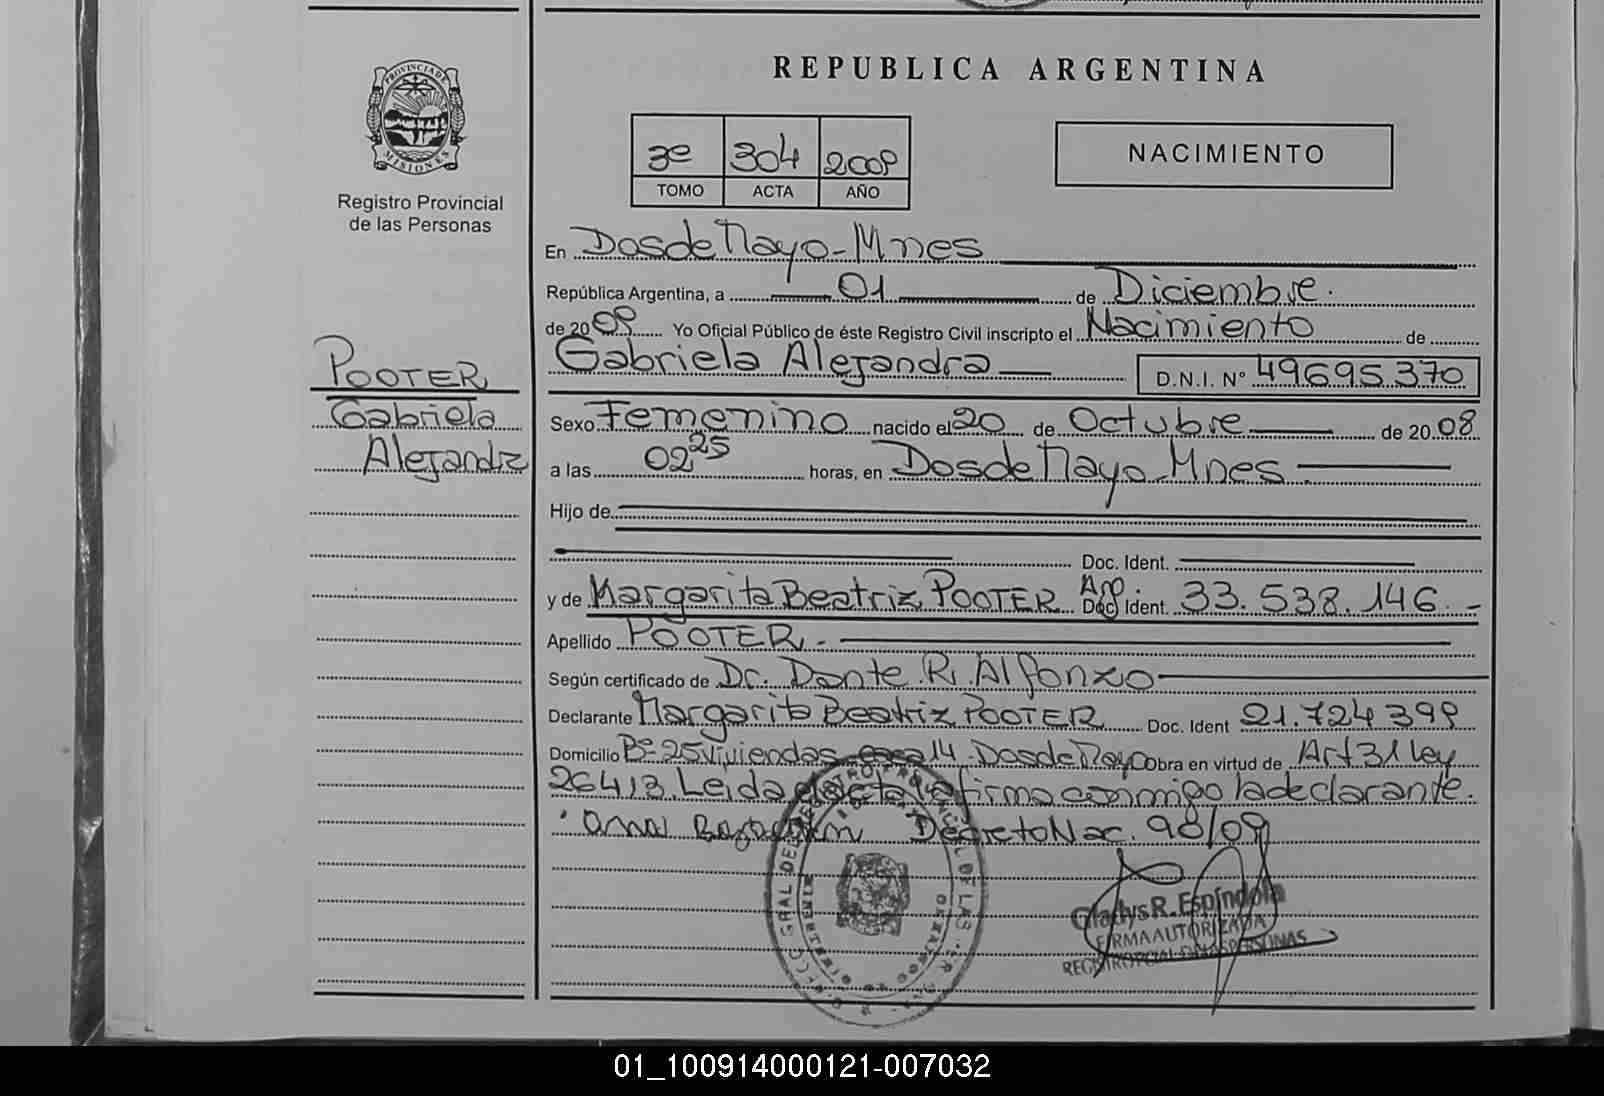 REPUBLICA ARGENTINA
PROVINCIA DE MISIONES
Registro Provincial
de las Personas
3º 304 2009
TOMO ACTA AÑO
NACIMIENTO
En Dos de Mayo - Mnes
República Argentina, a 01 de Diciembre.
de 2009 Yo Oficial Público de éste Registro Civil inscripto el Nacimiento de
Gabriela Alejandra D.N.I. Nº 49695370
POOTER
Gabriela
Alejandra
Sexo Femenino nacido el 20 de Octubre de 2008
a las 02 25 horas, en Dos de Mayo - Mnes.
Hijo de
Doc. Ident.
y de Margarita Beatriz POOTER Arg. Doc. Ident. 33.538.146.-
Apellido POOTER.-
Según certificado de Dr. Dante R. Alfonzo
Declarante Margarita Beatriz POOTER Doc. Ident 21.724399
Domicilio Bº 25 Viviendas casa 14 - Dos de Mayo Obra en virtud de Art 31 ley
26413. Leida el acta la firma conmigo la declarante.
Decreto Nac. 90/09
Gladys R. Espíndola
FIRMA AUTORIZADA
REGISTRO PCIAL. DE LAS PERSONAS
01_100914000121-007032